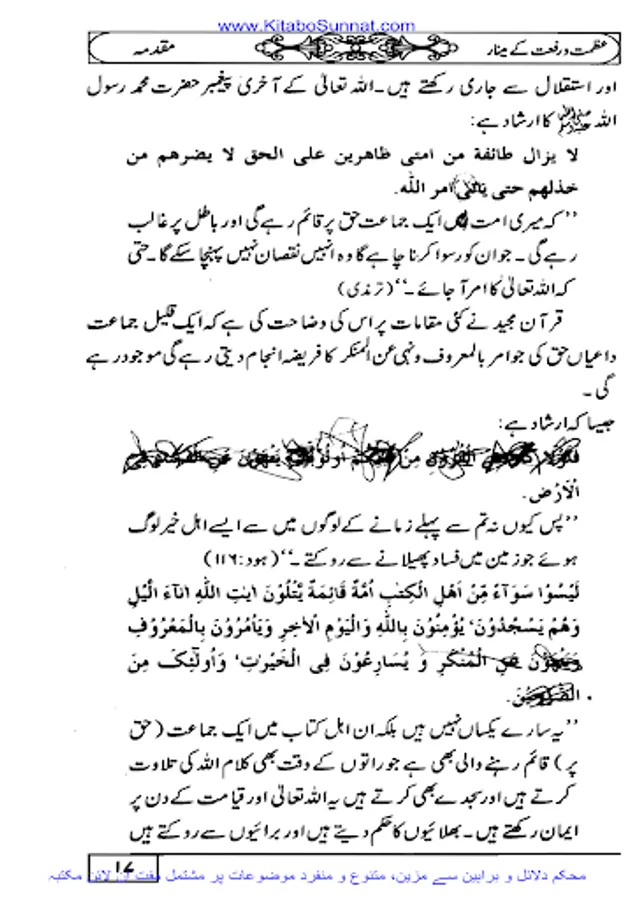 www.KitaboSunnat.com
عظمت و رفعت کے مینار
مقدمہ
اور استقلال سے جاری رکھتے ہیں۔ اللہ تعالیٰ کے آخری پیغمبر حضرت محمد رسول
اللہ ﷺ کا ارشاد ہے:
لا يزال طائفة من امتى ظاهرين على الحق لا يضرهم من
خذلهم حتى ياتى امر الله.
’’کہ میری امت ایک جماعت حق پر قائم رہے گی اور باطل پر غالب
رہے گی۔ جو ان کو رسوا کرنا چاہے گا وہ انہیں نقصان نہیں پہنچا سکے گا۔ حتی
کہ اللہ تعالیٰ کا امر آ جائے۔‘‘ (ترمذی)
قرآن مجید نے کئی مقامات پر اس کی وضاحت کی ہے کہ ایک قلیل جماعت
داعیاں حق کی جو امر بالمعروف ونہی عن المنکر کا فریضہ انجام دیتی رہے گی موجود رہے
گی۔
جیسا کہ ارشاد ہے:
الْقُرُوْنِ مِنْ اُولُوْا يَنْهَوْنَ عَنِ
الْاَرْضِ.
’’پس کیوں نہ تم سے پہلے زمانے کے لوگوں میں سے ایسے اہل خیر لوگ
ہوئے جو زمین میں فساد پھیلانے سے روکتے۔‘‘ (ہود:۱۱۶)
لَيْسُوْا سَوَآءً مِّنْ اَهْلِ الْكِتٰبِ اُمَّةٌ قَائِمَةٌ يَّتْلُوْنَ اٰيٰتِ اللّٰهِ اٰنَآءَ الَّيْلِ
وَهُمْ يَسْجُدُوْنَ، يُؤْمِنُوْنَ بِاللّٰهِ وَالْيَوْمِ الْاٰخِرِ وَيَأْمُرُوْنَ بِالْمَعْرُوْفِ
عَنِ الْمُنْكَرِ وَ يُسَارِعُوْنَ فِى الْخَيْرٰتِ، وَاُولٰٓئِكَ مِنَ
’’یہ سارے یکساں نہیں ہیں بلکہ ان اہل کتاب میں ایک جماعت (حق
پر) قائم رہنے والی بھی ہے جو راتوں کے وقت بھی کلام اللہ کی تلاوت
کرتے ہیں اور سجدے بھی کرتے ہیں یہ اللہ تعالیٰ اور قیامت کے دن پر
ایمان رکھتے ہیں۔ بھلائیوں کا حکم دیتے ہیں اور برائیوں سے روکتے ہیں
۱۷
محکم دلائل و براہین سے مزین، متنوع و منفرد موضوعات پر مشتمل مفت آن لائن مکتبہ